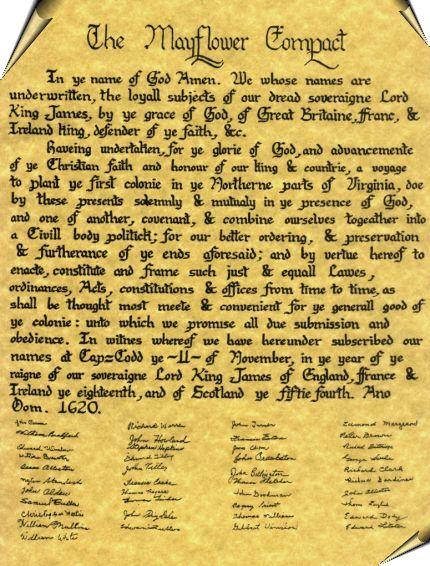 The Mayflower Compact
In ye name of God Amen. We whose names are
underwritten, the loyall subjects of our dread soveraigne Lord
King James, by ye grace of God, of Great Britaine, ffranc, &
Ireland king, defender of ye faith, &c.
Haveing undertaken, for ye glorie of God, and advancemente
of ye Christian faith and honour of our king & countrie, a voyage
to plant ye first colonie in ye Northerne parts of Virginia, doe
by these presents solemnly & mutualy in ye presence of God,
and one of another, covenant, & combine ourselves togeather into
a Civill body politick; for our better ordering, & preservation
& furtherance of ye ends aforesaid; and by vertue hereof to
enacte, constitute and frame such just & equall Lawes,
ordinances, Acts, constitutions & offices from time to time, as
shall be thought most meete & convenient for ye generall good of
ye colonie: unto which we promise all due submission and
obedience. In witnes whereof we have hereunder subscribed our
names at Cap=Codd ye ~11~ of November, in ye year of ye
raigne of our soveraigne Lord King James of England, ffrance &
Ireland ye eighteenth, and of Scotland ye fiftie fourth. Ano
Dom. 1620.
Richard Warren John Turner
William Bradford John Howland Edward
Stephen Hopkins Peter Browne
John Crackston
Isaac Allerton John Tilley Richard Clark
John Billington
Myles Standish Francis Cooke Richard Gardiner
John Alden Thomas Rogers John Allerton
Samuel Fuller Thomas Tinker
Edward Doty
William Mullins Edward Fuller Gilbert Winslow
William White